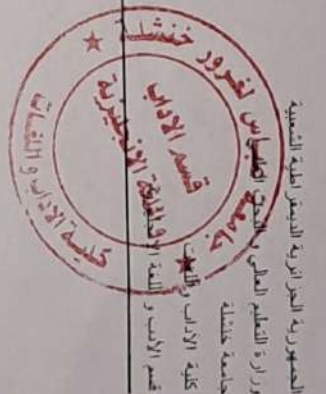 الجمهورية الجزائرية الديمقراطية الشعبية
وزارة التعليم العالي والبحث العلمي
جامعة خنشلة
كلية الآداب واللغات
قسم الأدب واللغة الإنجليزية
جامعة عباس لغرور خنشلة
كلية الآداب و اللغات
قسم الآداب
واللغة الإنجليزية